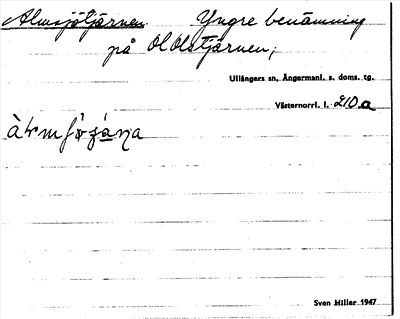 Almsjötjärnen. Yngre benämning
på Ol Olstjärnen;
Ullångers sn, Ångermanl. s. doms. tg.
Västernorrl. l. 210 a
Sven Hiller 1947